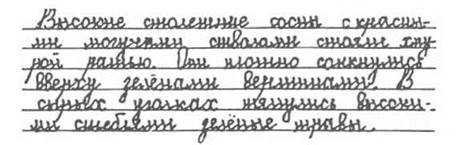 Высокие столетние сосны с красны-
ми могучими стволами стояли хму-
рой ратью. Они плотно сомкнулись
вверху зелёными вершинами. В
сырых уголках тянулись высоки-
ми стеблями зелёные травы.